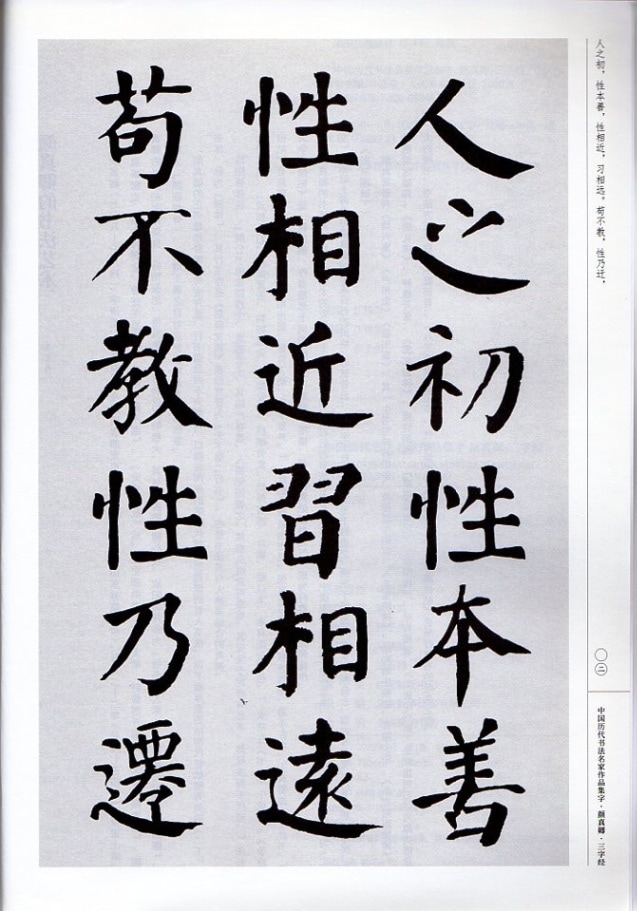 人之初性本善
性相近習相遠
苟不教性乃遷
人之初，性本善，性相近，习相远。苟不教，性乃迁，
〇二
中国历代书法名家作品集字·颜真卿·三字经